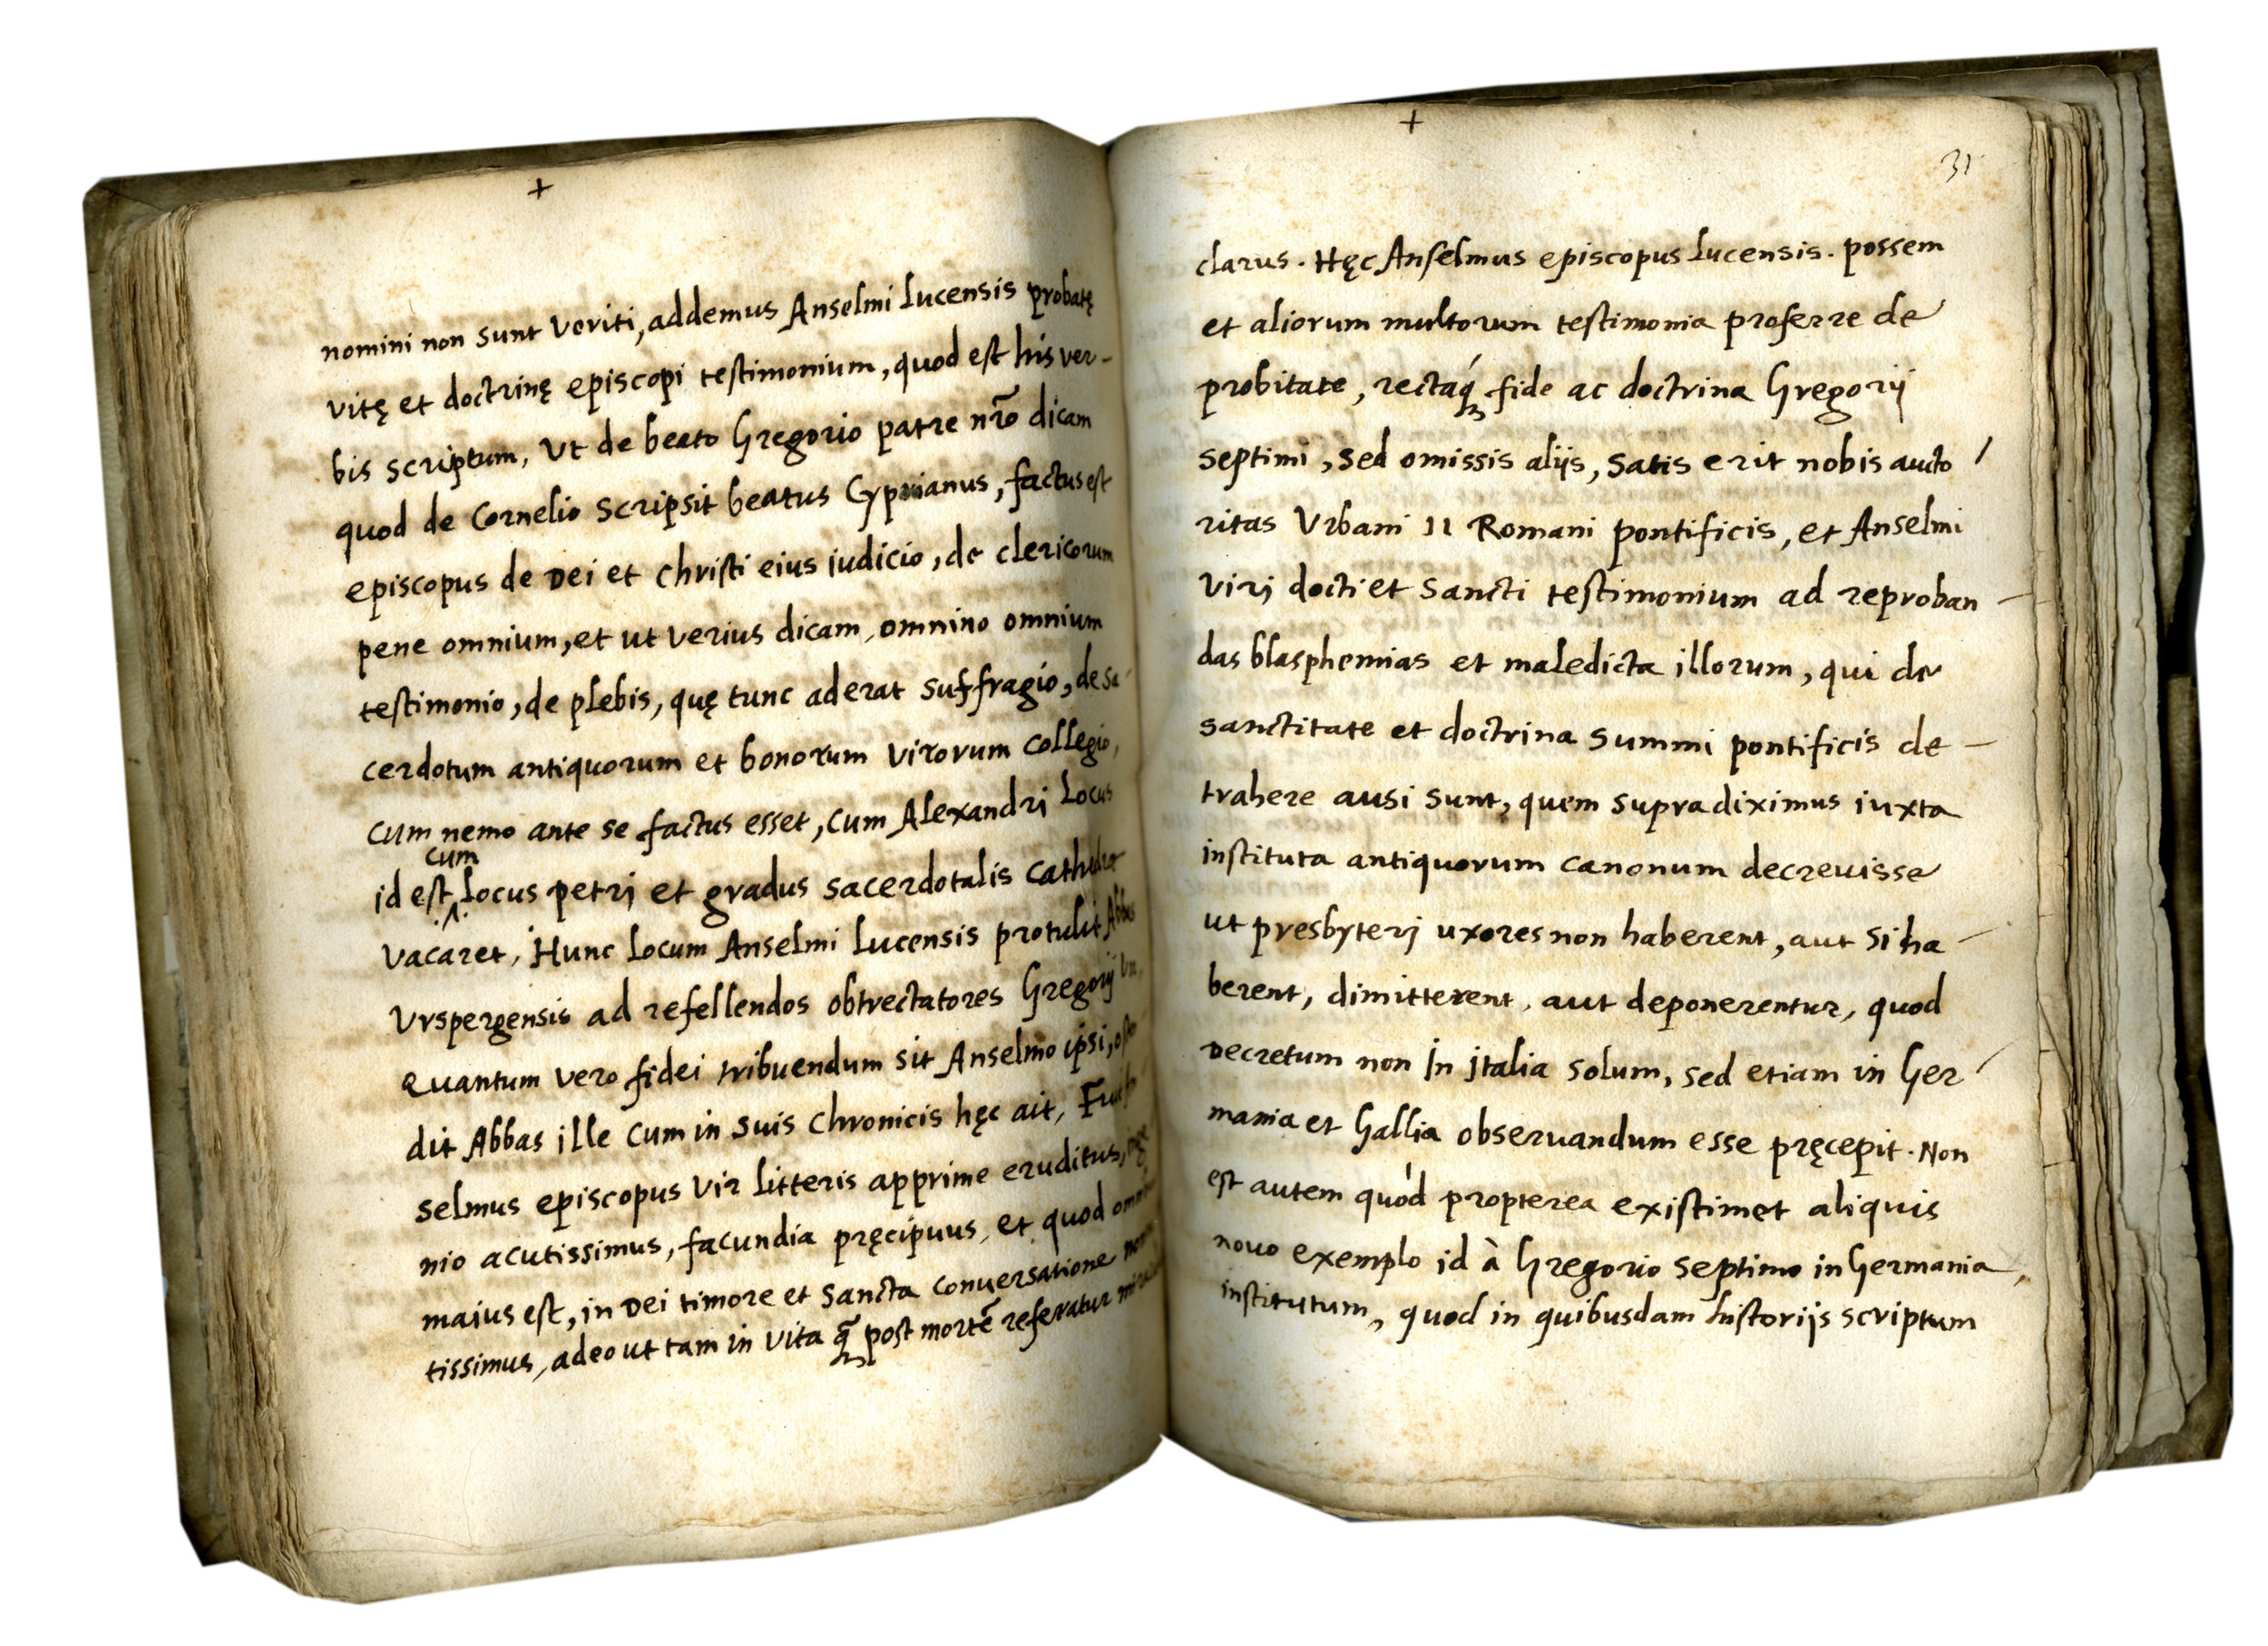 +
nomini non sunt veriti, addemus Anselmi Lucensis probatę
vitę et doctrinę episcopi testimonium, quod est his ver-
bis scriptum, Ut de beato Gregorio patre nr̃o dicam
quod de Cornelio scripsit beatus Cyprianus, factus est
episcopus de Dei et Christi eius iudicio, de clericorum
pene omnium, et ut verius dicam, omnino omnium
testimonio, de plebis, quę tunc aderat suffragio, de sa-
cerdotum antiquorum et bonorum virorum collegio,
cum nemo ante se factus esset, cum Alexandri locus
cum
id est locus petri et gradus sacerdotalis
vacaret, Hunc locum Anselmi Lucensis protulit Abbas
Urspergensis ad refellendos obtrectatores Gregorij
Quantum vero fidei tribuendum sit Anselmo ipsi,
dit Abbas ille cum in suis chronicis hęc ait,
selmus episcopus vir litteris apprime eruditus,
nio acutissimus, facundia pręcipuus, et quod
maius est, in Dei timore et sancta conversatione
tissimus, adeo ut tam in vita q̃ post mortẽ referatur
+
31
clarus. Hęc Anselmus episcopus Lucensis. possem
et aliorum multorum testimonia proferre de
probitate, rectaq́ fide ac doctrina Gregorij
septimi, sed omissis alijs, satis erit nobis aucto /
ritas Urbani II Romani pontificis, et Anselmi
viri docti et sancti testimonium ad reproban -
das blasphemias et maledicta illorum, qui de
sanctitate et doctrina summi pontificis de -
trahere ausi sunt, quem supra diximus iuxta
instituta antiquorum canonum decrevisse
ut presbyterj uxores non haberent, aut si ha -
berent, dimitterent, aut deponerentur, quod
Decretum non in jtalia solum, sed etiam in Ger /
mania et Gallia observandum esse pręcepit. Non
est autem quòd propterea existimet aliquis
nouo exemplo id à Gregorio septimo in Germania,
institutum, quod in quibusdam historijs scriptum